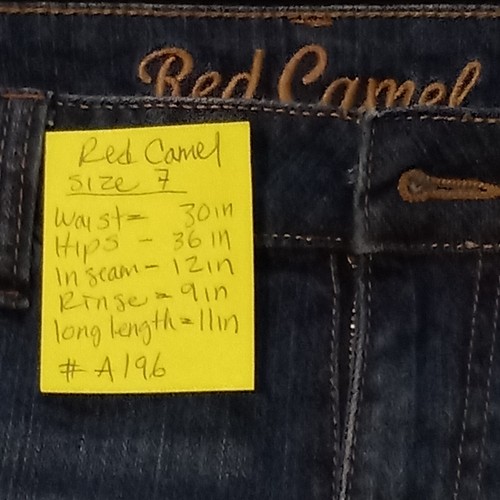 Red Camel
Red Camel
Size 7
Waist= 30in
Hips - 36in
Inseam - 12in
Rinse = 9in
long length = 11in
# A196